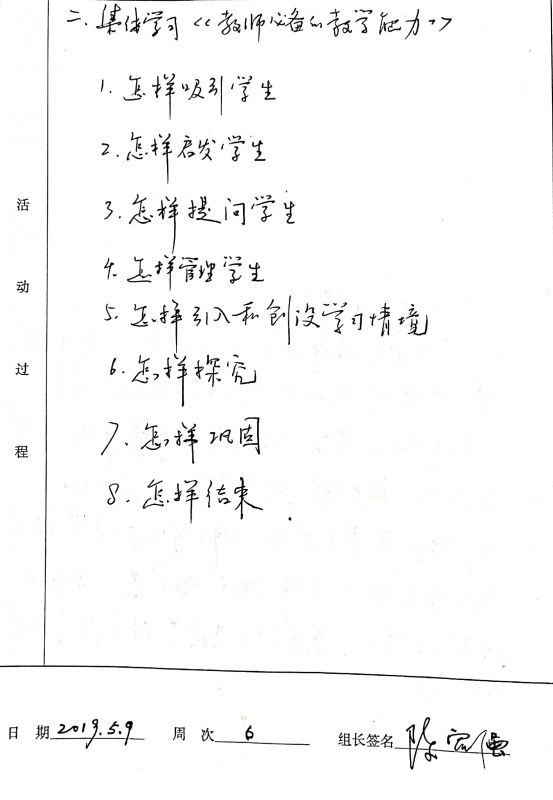 二、集体学习《教师必备的教学能力》
1. 怎样吸引学生
2. 怎样启发学生
3. 怎样提问学生
4. 怎样管理学生
5. 怎样引入和创设学习情境
6. 怎样探究
7. 怎样巩固
8. 怎样结束.
活动过程
日 期 2019.5.9 周 次 6 组长签名 陈